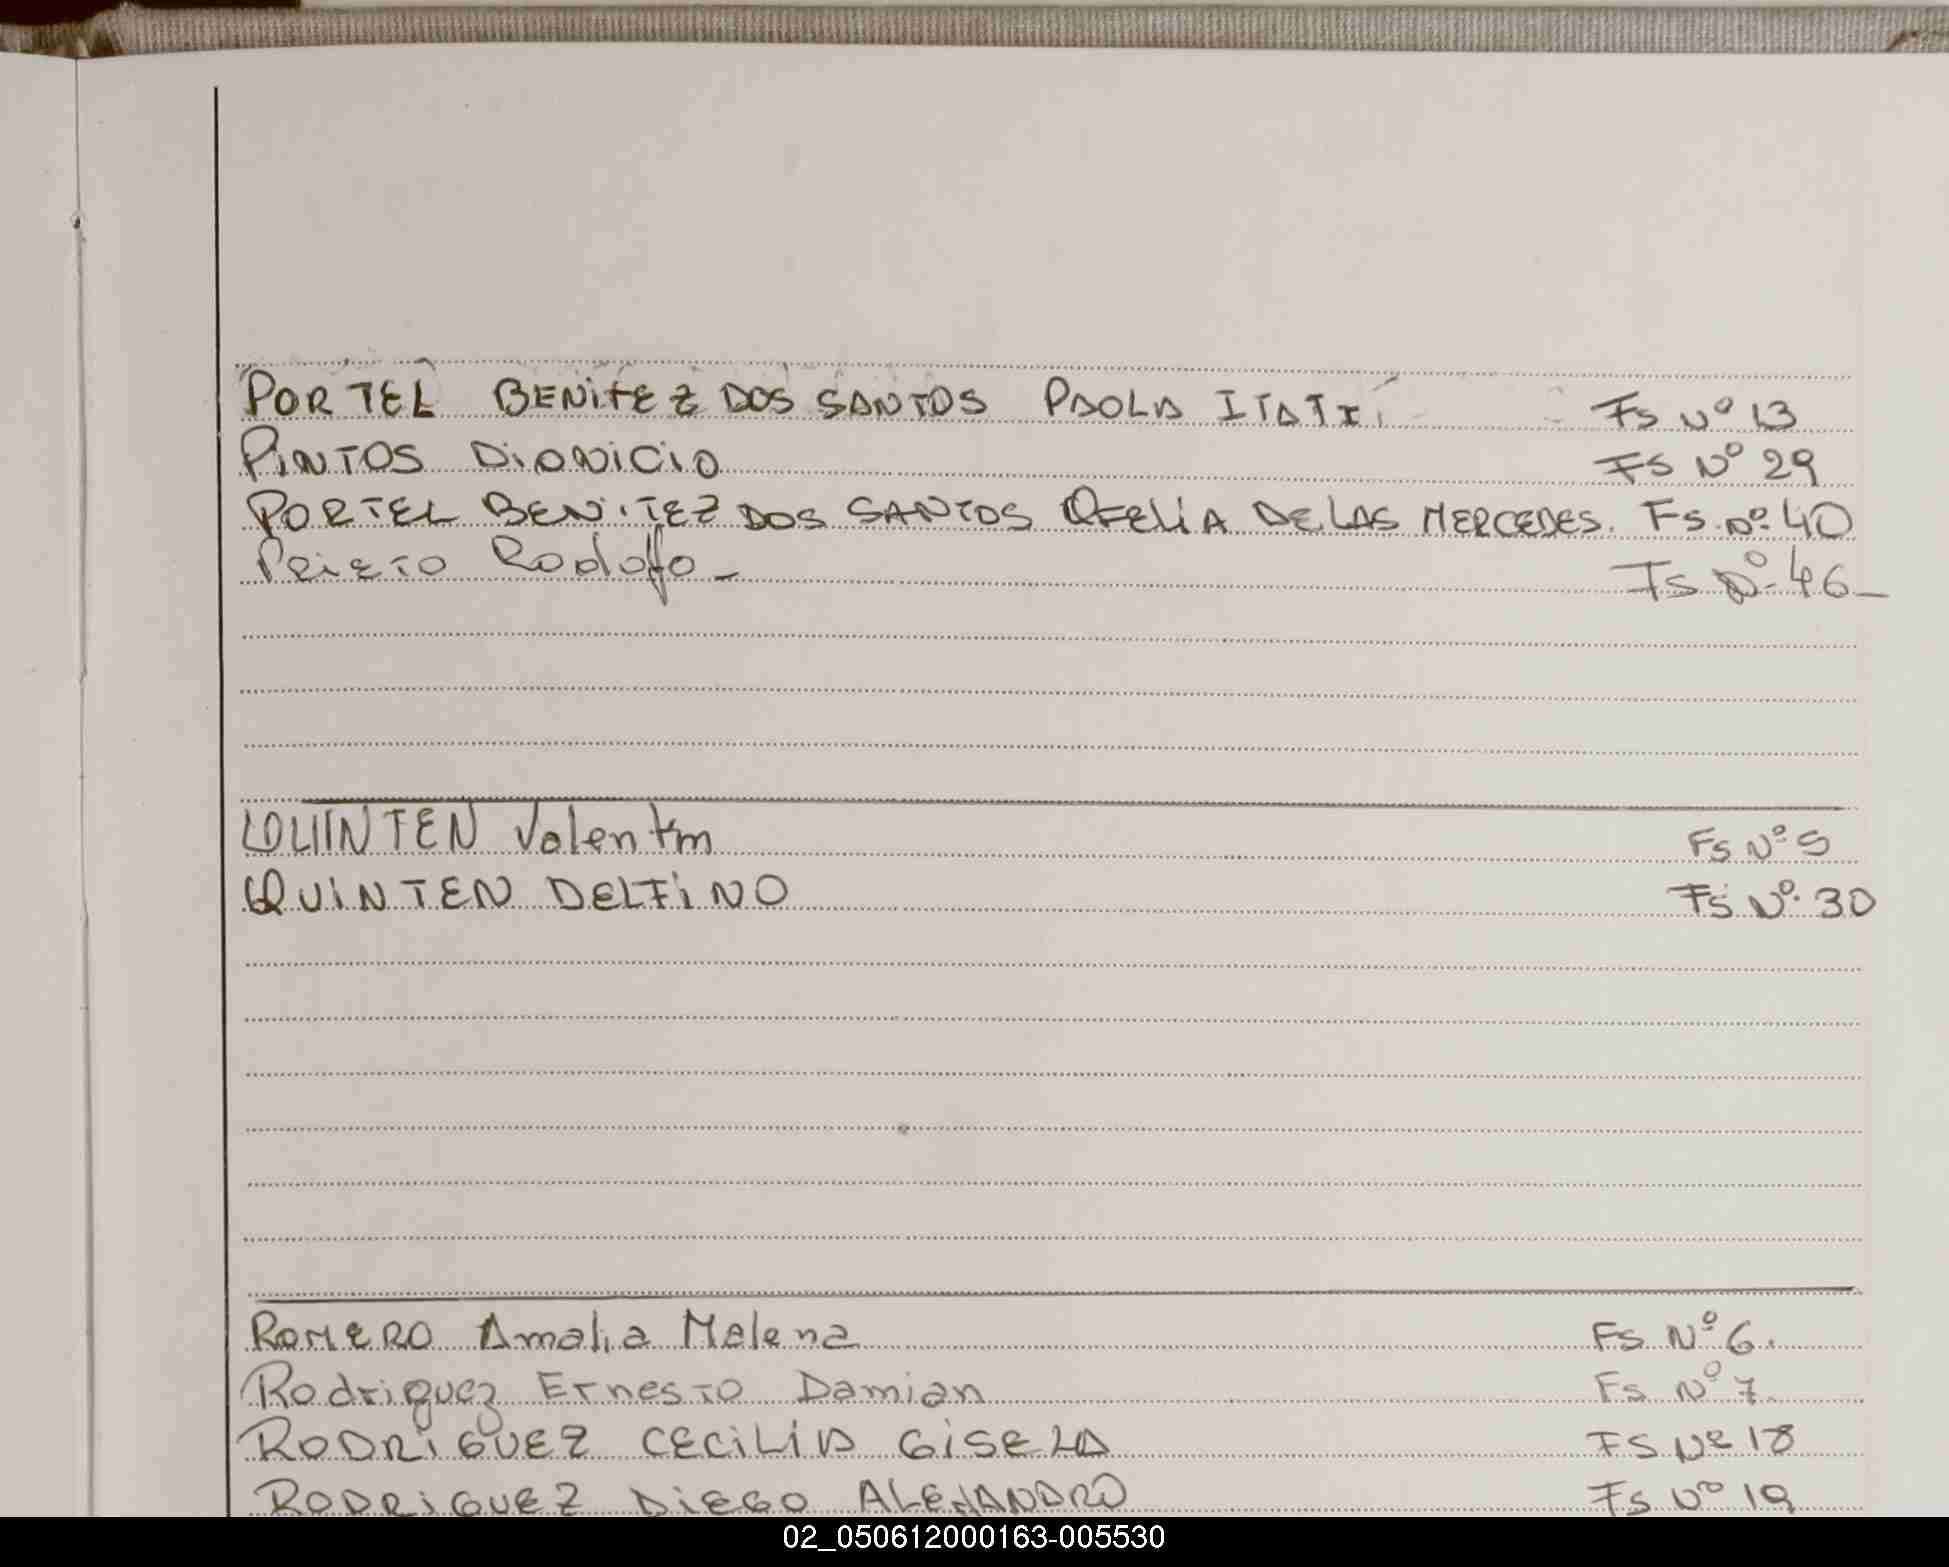 PORTEL BENITEZ DOS SANTOS PAOLA ITATI. Fs Nº 13
PINTOS DIONICIO Fs Nº 29
PORTEL BENITEZ DOS SANTOS OFELIA DE LAS MERCEDES. Fs. Nº 40
Prieto Rodolfo - Fs Nº 46-
QUINTEN Valentin Fs Nº 5
QUINTEN DELFINO Fs Nº 30
ROMERO Amalia Malena Fs Nº 6.
Rodriguez Ernesto Damian Fs Nº 7
RODRIGUEZ CECILIA GISELA FS Nº 18
RODRIGUEZ DIEGO ALEJANDRO Fs Nº 19
02_050612000163-005530